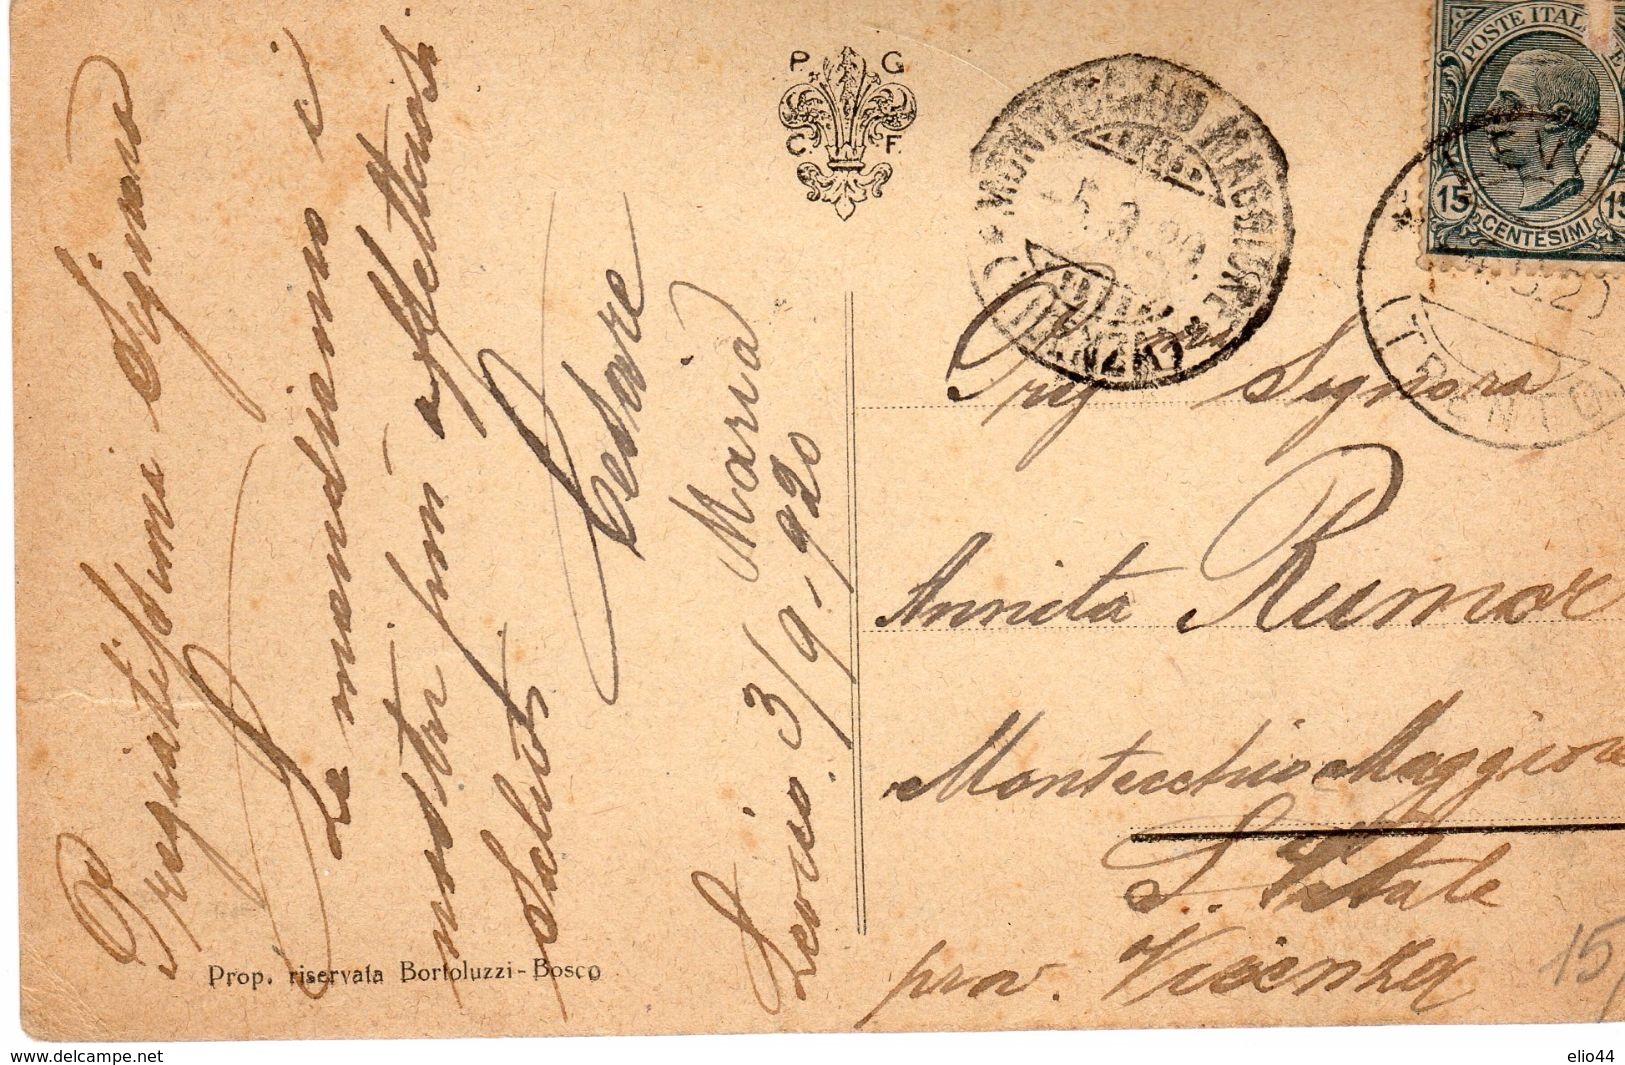 Pregiatissima Signora
Le mandiamo i
nostri più affettuosi
saluti
Cesare
Maria
Levico 3/9-920
Prop. riservata Bortoluzzi-Bosco
P. G.
C. F.
MONTECCHIO MAGGIORE
(VICENZA)
POSTE ITALIANE
15 CENTESIMI 15
LEVICO
(TRENTO)
Preg ma Signora
Annita Rumor
Montecchio Maggiore
S. Vitale
prov. Vicenza
15
www.delcampe.net
elio44